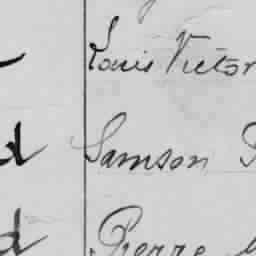 Louis Victor
d Samson
d Pierre